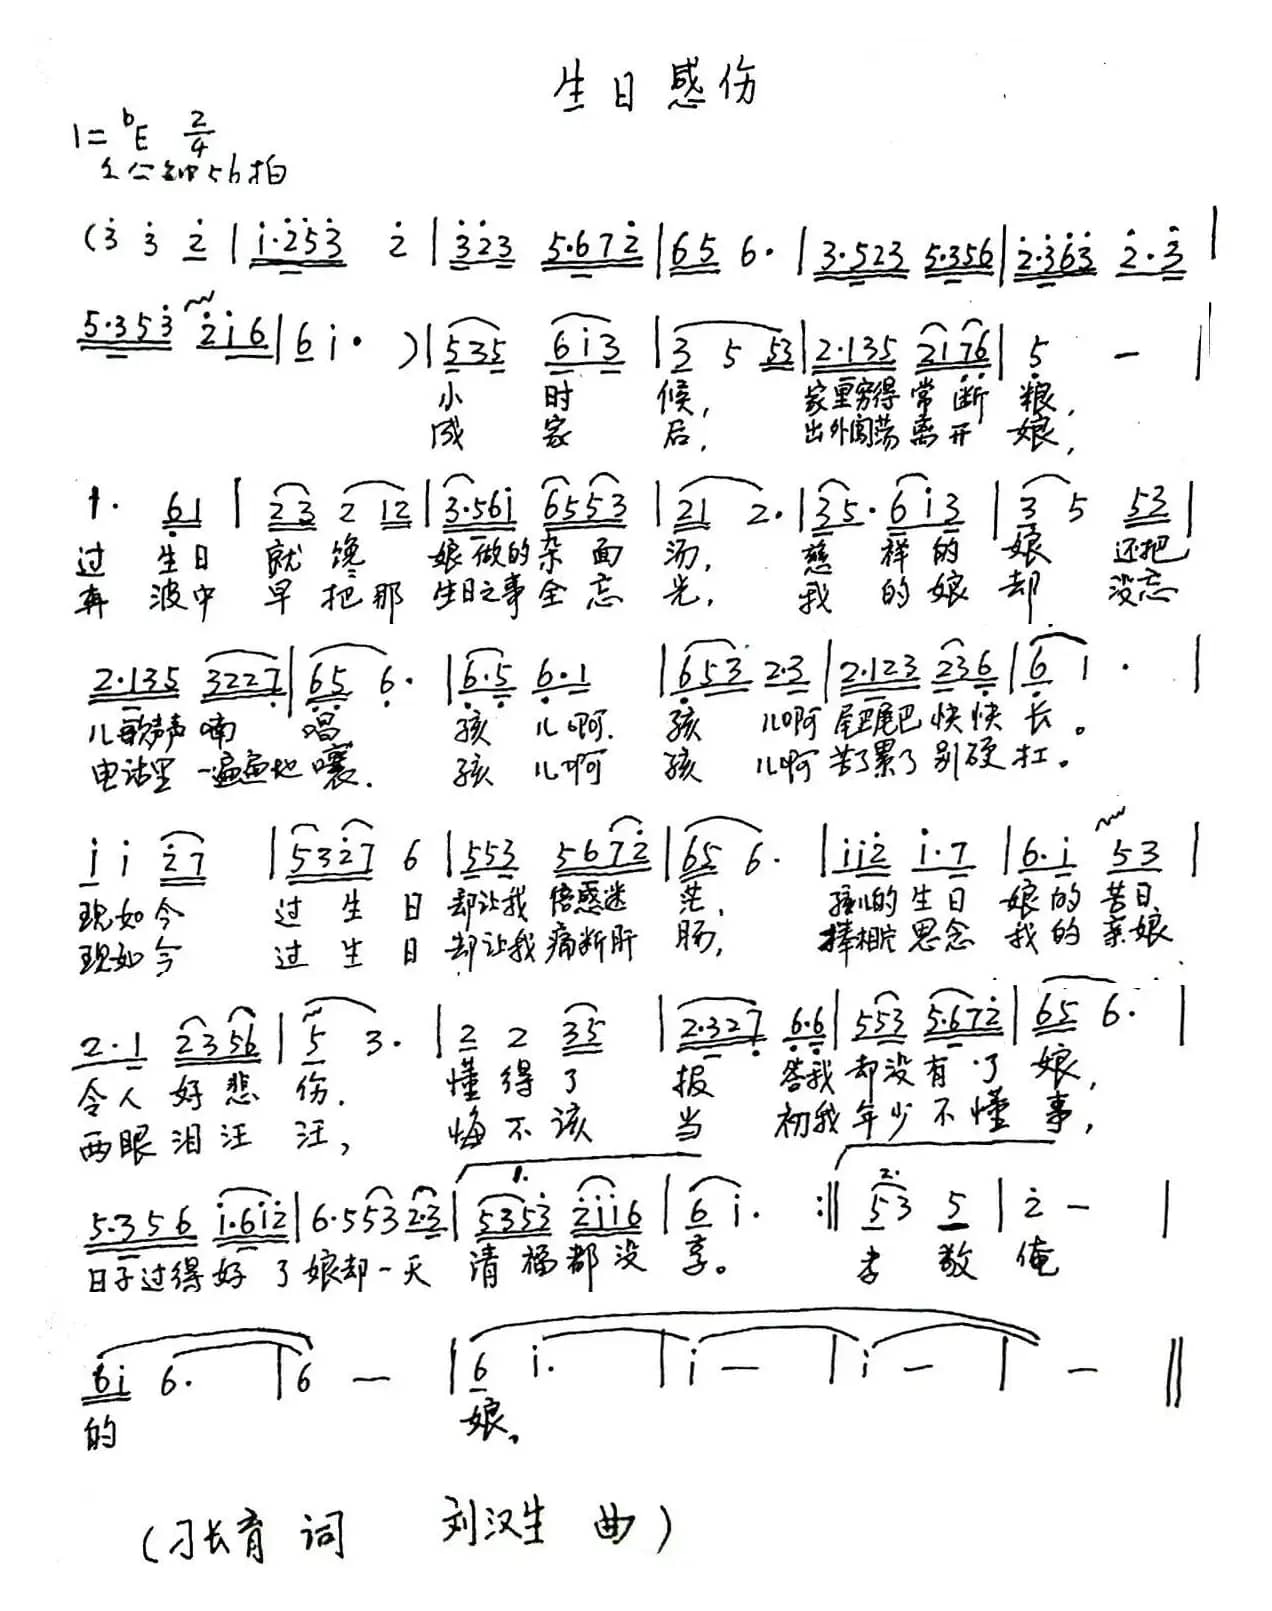 生日感伤
1=ᵇE 2/4
分钟56拍
(3 3 2 | 1·253 2 | 323 5·672 | 65 6· | 3·523 5·356 | 2·363 2·3 |
5·353 216 | 61· ) | 535 613 | 3 5 53 | 2·135 2176 | 5 — |
小 时 候, 家里穷得常断 粮,
成 家 后, 出外闯荡离开 娘,
1· 61 | 23 2 12 | 3·561 6553 | 21 2· | 35· 613 | 3 5 53 |
过 生日 就 馋 娘做的杂面 汤, 慈 祥的 娘 还把
奔 波中 早 把那 生日之事全忘 光, 我 的娘 却 没忘
2·135 3227 | 65 6· | 6·5 6·1 | 653 2·3 | 2·123 236 | 6 1· |
儿歌声喃 唱 孩 儿啊. 孩 儿啊 尾巴尾巴 快快 长。
电话里一遍遍地 嚷. 孩 儿啊 孩 儿啊 苦了累了 别硬 扛。
1 1 27 | 5327 6 | 553 5672 | 65 6· | 112 1·7 | 6·1 53 |
现如今 过生日 却让我倍感迷 茫, 孩儿的生日 娘的苦日
现如今 过生日 却让我痛断肝 肠, 捧相片思念 我的亲娘
2·1 2356 | 5 3· | 2 2 35 | 2·327 6·6 | 553 5·672 | 65 6· |
令人好悲 伤. 懂得了 报 答我 却没有了 娘,
两眼泪汪 汪, 悔不该 当 初我 年少不懂 事,
5·356 1·612 | 6·553 2·3 | 1. 5353 2116 | 6 1· :‖ 2. 53 5 | 2 — |
日子过得好了娘却一天 清福都没 享。 孝 敬 俺
61 6· | 6 — | 6 1· | 1 — | 1 — | — ‖
的 娘。
(刁长育 词 刘汉生 曲)